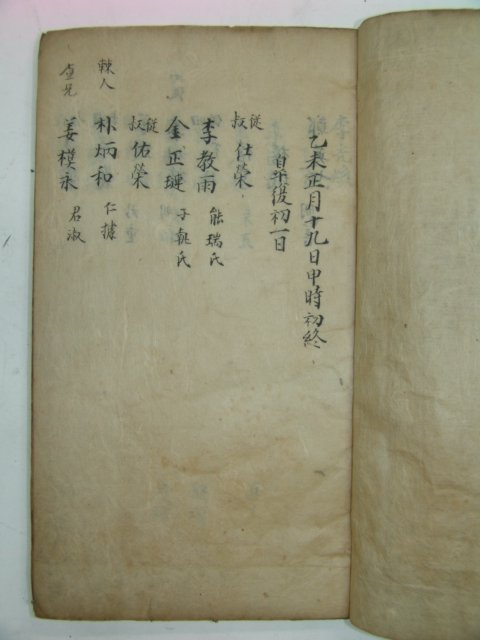 乙未正月十九日申時初終
自午後初一日
從叔仕榮
李教雨 能瑞氏
金正璉 子毓氏
從叔佑榮
棘人 朴炳和 仁據
査兄 姜模永 君淑